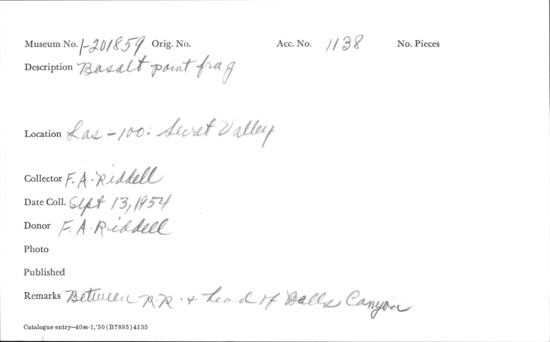 Museum No. 1-201859 Orig. No. Acc. No. 1138 No. Pieces
Description Basalt point frag
Location Las-100: Secret Valley
Collector F.A. Riddell
Date Coll. Sept 13, 1954
Donor F.A. Riddell
Photo
Published
Remarks Between R.R. + head of Balls Canyon
Catalogue entry—40m-1,'50 (B7895) 4135